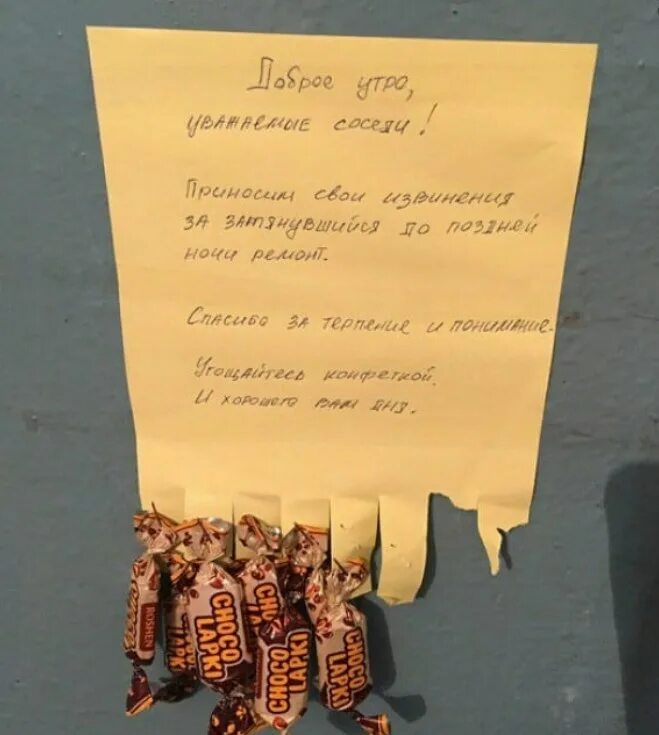 Доброе утро,
уважаемые соседи!
Приносим свои извинения
за затянувшийся до поздней
ночи ремонт.
Спасибо за терпение и понимание.
Угощайтесь конфеткой.
И хорошего вам дня.
ROSHEN
CHOCO
LAPKI
CHOCO
LAPKI
CHOCO
LAPKI